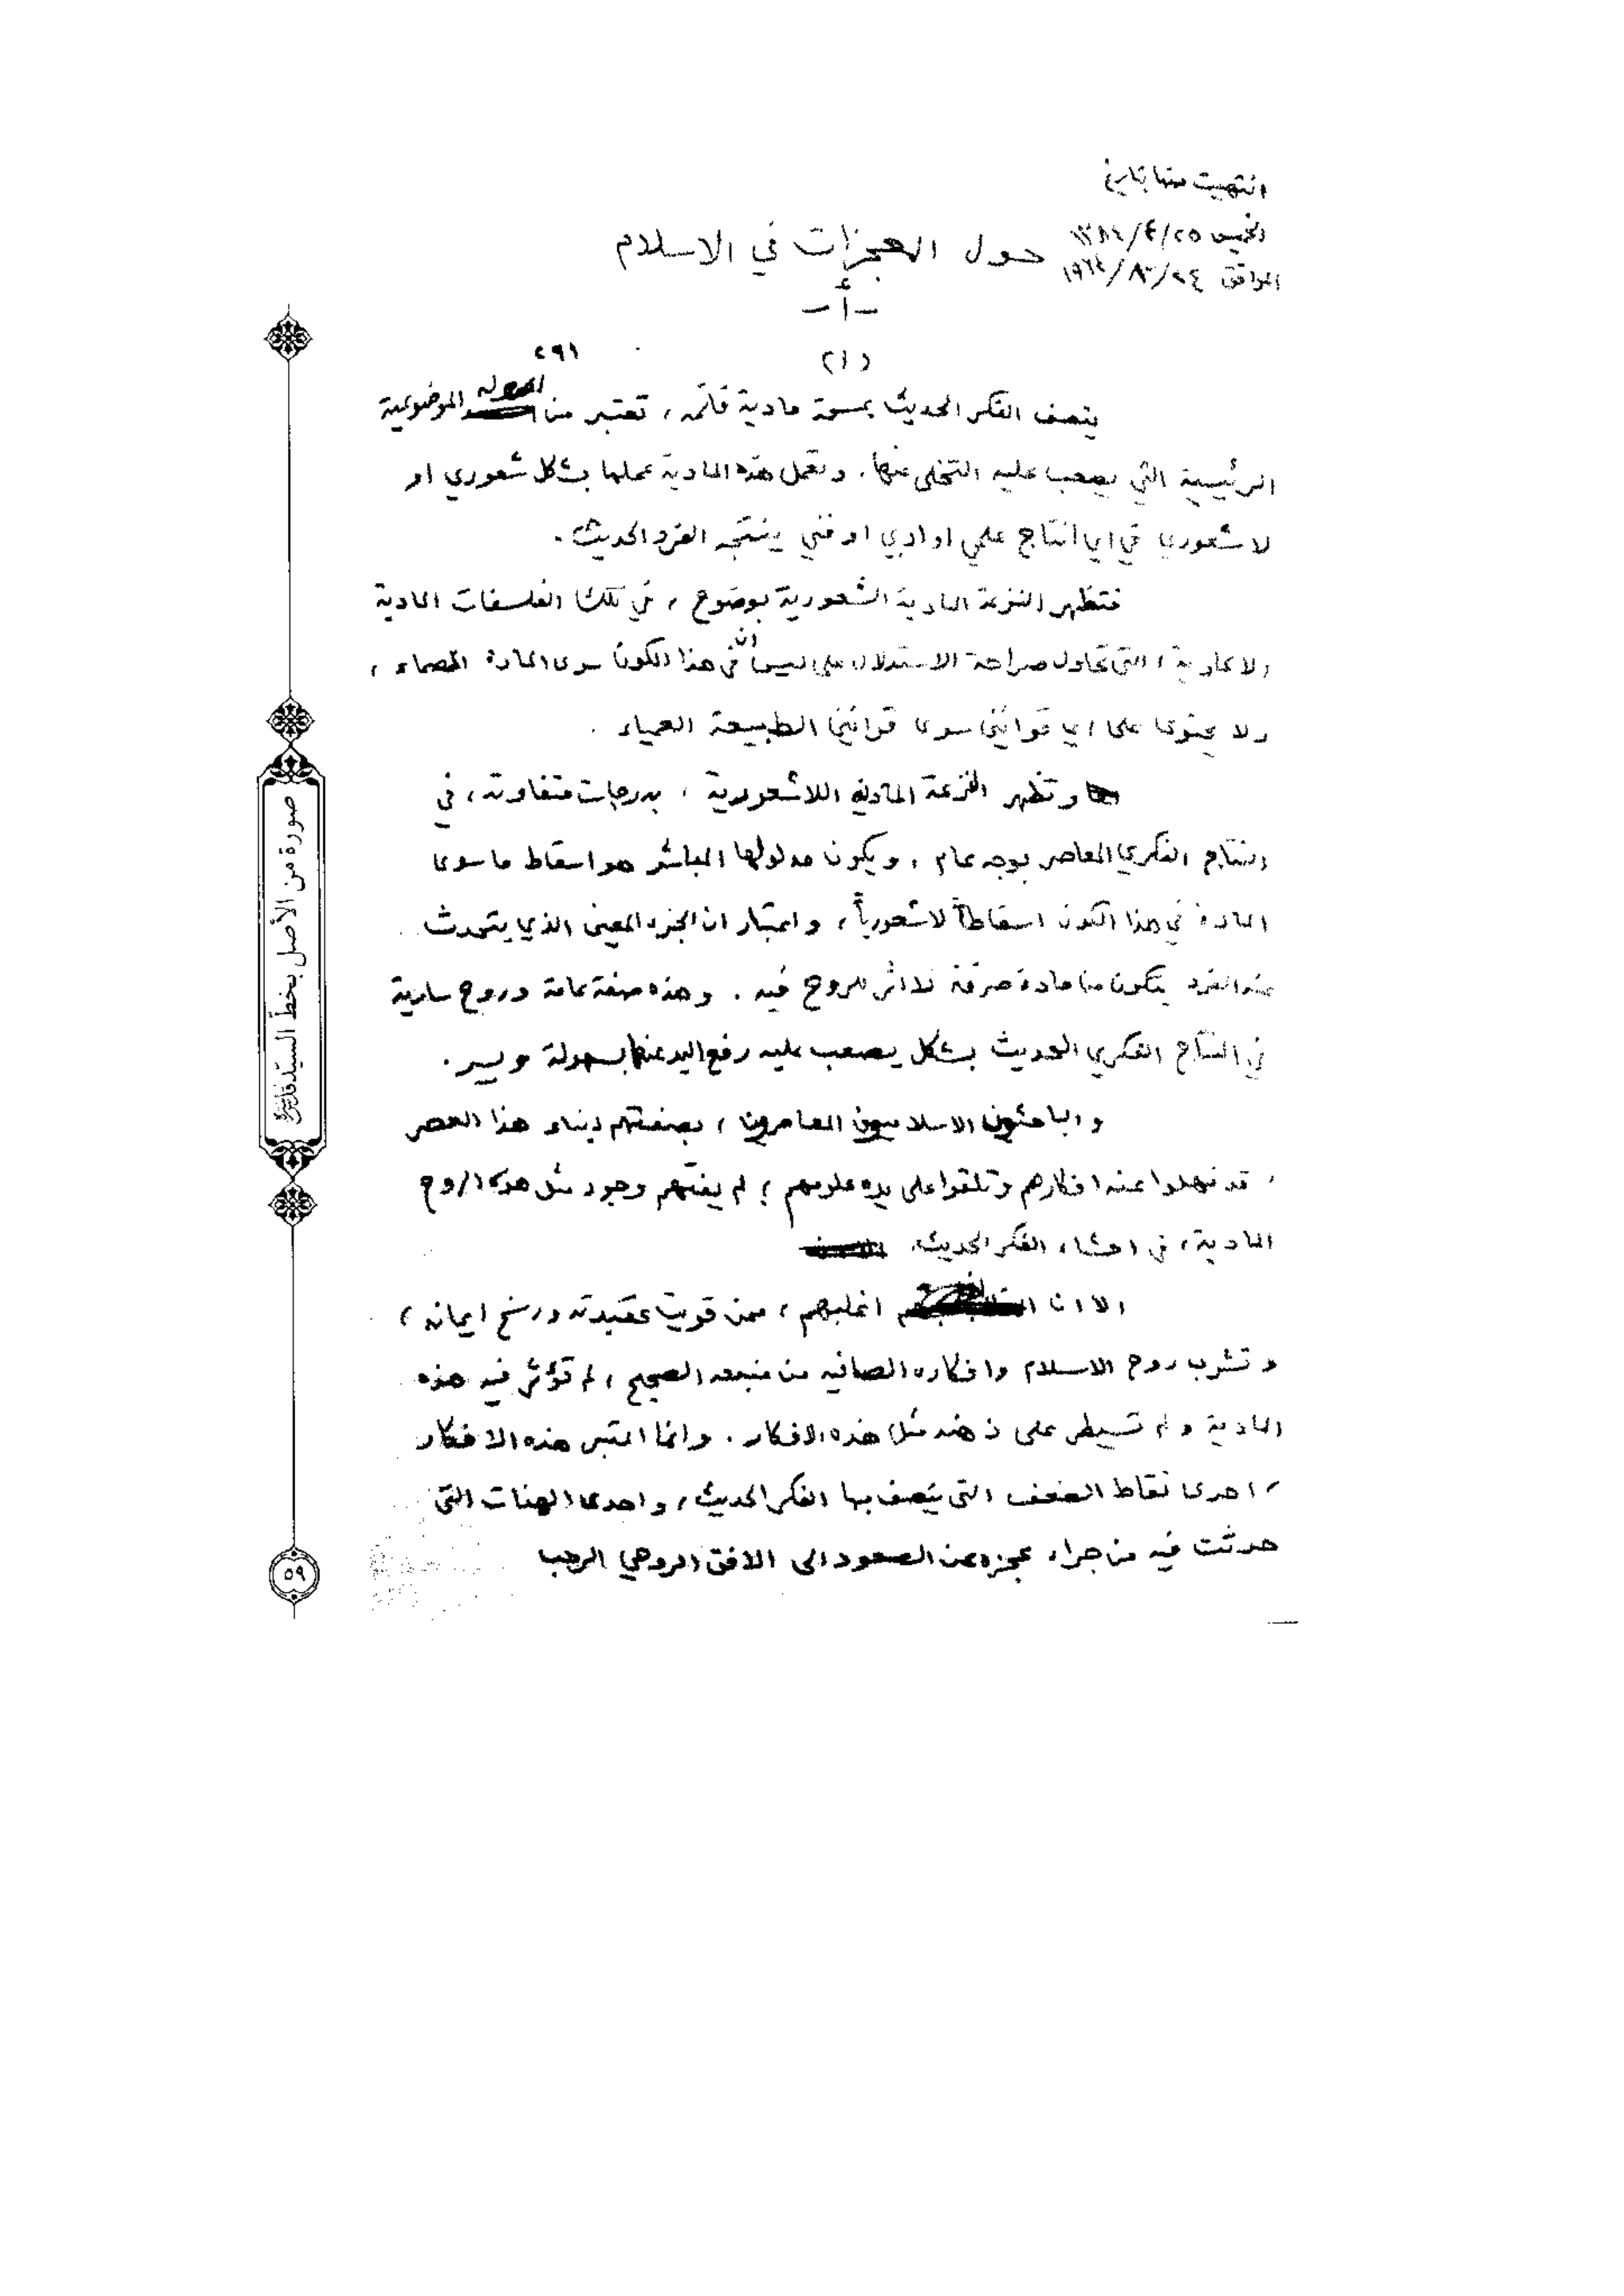 انتهيت منها بتاريخ
الخميس ٢٥/٤/
الموافق
حول المعجزات في الاسلام
- أ -
(١)
٢٩١
يتصف الفكر الحديث بسمة مادية قاتمه، تعتبر من اصوله الموضوعية
الرئيسية التي يصعب عليه التخلى عنها. وتعمل هذه المادية عملها بشكل شعوري او
لا شعوري في اي انتاج علمي او ادبي او فني ينتجه الفرد الحديث.
فتظهر النزعة المادية الشعورية بوضوح، في تلك الفلسفات المادية
والالحادية، التي تحاول صراحة الاستدلال على ان ليس في هذا الكون سوى المادة الصماء،
ولا يحتوى على اي قوانين سوى قوانين الطبيعة العمياء.
وتظهر النزعة المادية اللاشعورية، بدرجات متفاوتة، في
النتاج الفكري المعاصر بوجه عام، ويكون مدلولها المباشر هو اسقاط ما سوى
المادة في هذا الكون اسقاطاً لا شعورياً، واعتبار ان الجزء المعين الذي يتحدث
عنه الفرد يتكون من مادة صرفة لا اثر للروح فيه. وهذه صفة عامة وروح سارية
في النتاج الفكري الحديث بشكل يصعب عليه رفع اليد عنها بسهولة ويسر.
والباحثون الاسلاميون المعاصرون، بصفتهم ابناء هذا العصر
، قد نهلوا عنه افكارهم وتلقوا على يده علومهم؛ لم يفتهم وجود مثل هذه الروح
المادية، في احشاء الفكر الحديث.
الا ان اغلبهم، ممن قويت عقيدته ورسخ ايمانه،
وتشرب روح الاسلام وافكاره الصافيه من منبعه الصحيح، لم تؤثر فيه هذه
المادية ولم تسيطر على ذهنه مثل هذه الافكار. وانما اعتبر هذه الافكار
، احدى نقاط الضعف التي يتصف بها الفكر الحديث، واحدى الهنات التي
حدثت فيه من جراء عجزه عن الصعود الى الافق الروحي الرحب
صورة من الأصل بخطّ السيّد
٥٩